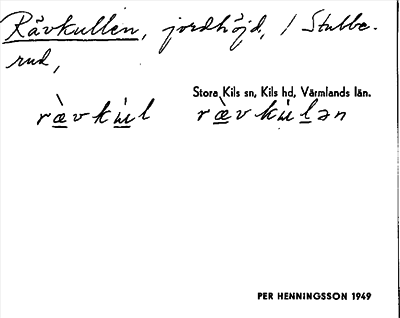 Rävkullen, jordhöjd, i Stubbe-
rud,
Stora Kils sn, Kils hd, Värmlands län.
ræ̀vku̇l ræ̀vku̇lən
PER HENNINGSSON 1949